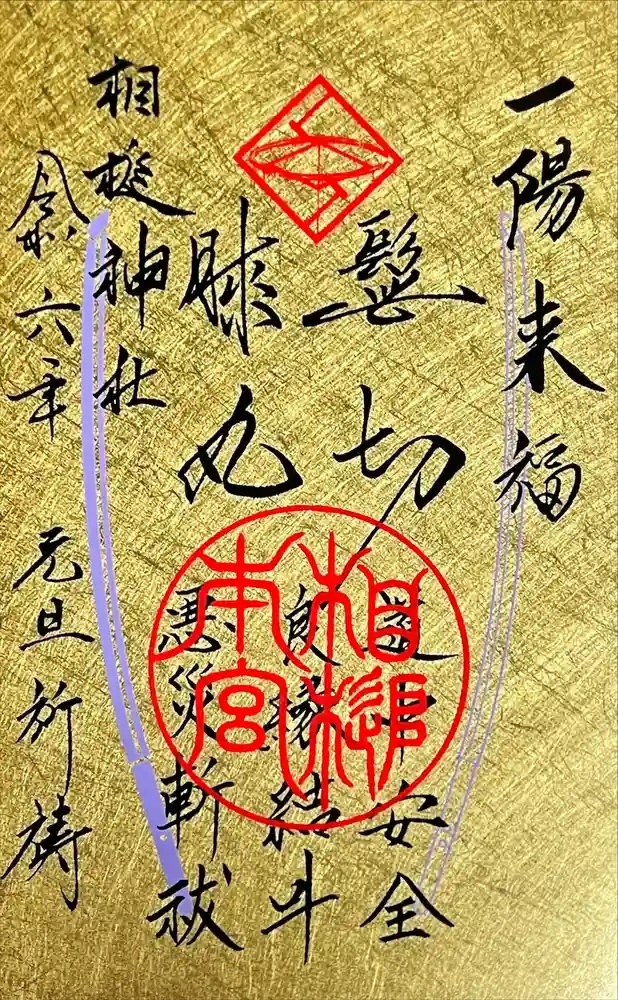 一陽来福
髭切
膝丸
道中安全
良縁結
悪災斬祓
相槌
本宮
相槌神社
令和六年 元旦祈祷